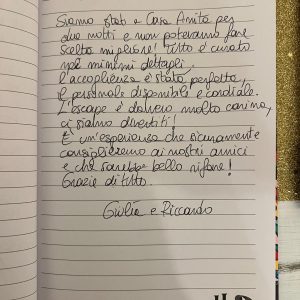 Siamo stati a Casa Anita per
due notti e non potevamo fare
scelta migliore! Tutto è curato
nei minimi dettagli,
l'accoglienza è stata perfetta,
il personale disponibile e cordiale.
L'escape è davvero molto carina,
ci siamo divertiti!
È un'esperienza che sicuramente
consiglieremo ai nostri amici
e che sarebbe bello rifare!
Grazie di tutto.
Giulia e Riccardo